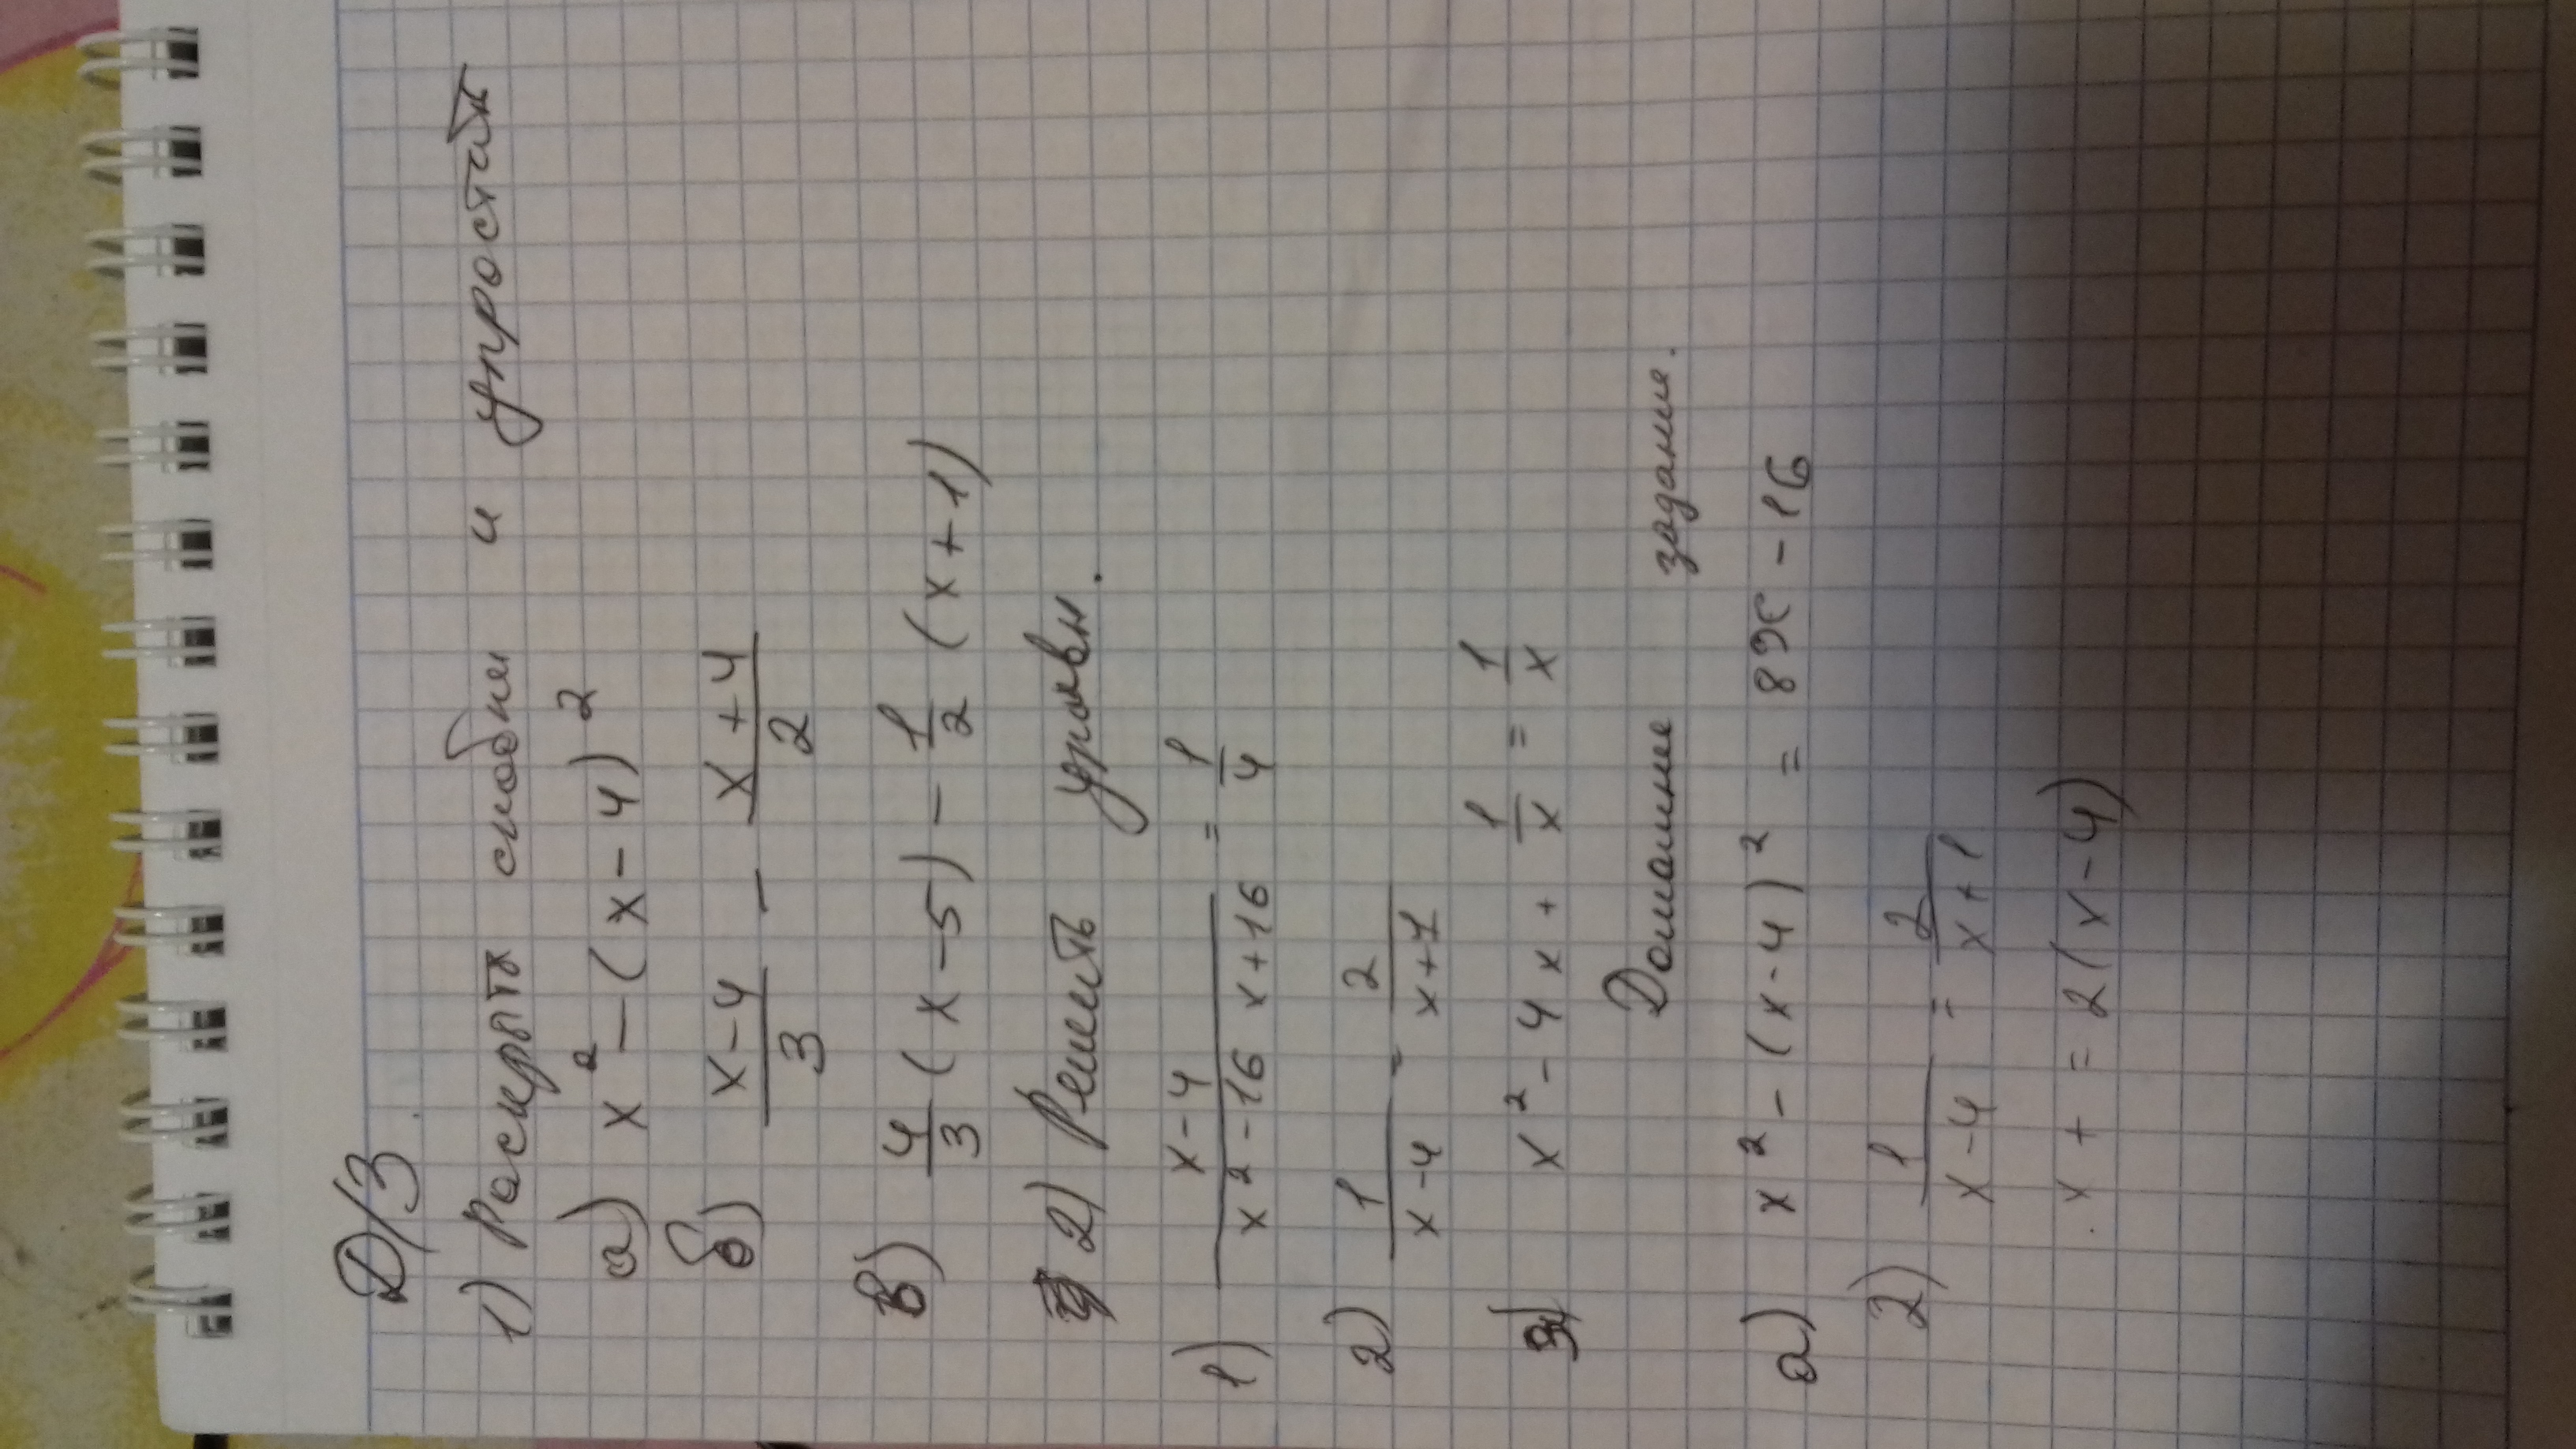 Д/З
1) Раскрыть скобки и упростить
а) x² - (x - 4)²
б) (x-4)/3 - (x+4)/2
в) 4/3 (x - 5) - 1/2 (x + 1)
2) Решить уравн.
1) (x-4)/(x² - 16x + 16) = 1/4
2) 1/(x-4) = 2/(x+1)
3) x² - 4x + 1/x = 1/x
Домашние задание.
а) x² - (x-4)² = 8x - 16
2) 1/(x-4) = 2/(x+1)
x + = 2(x-4)